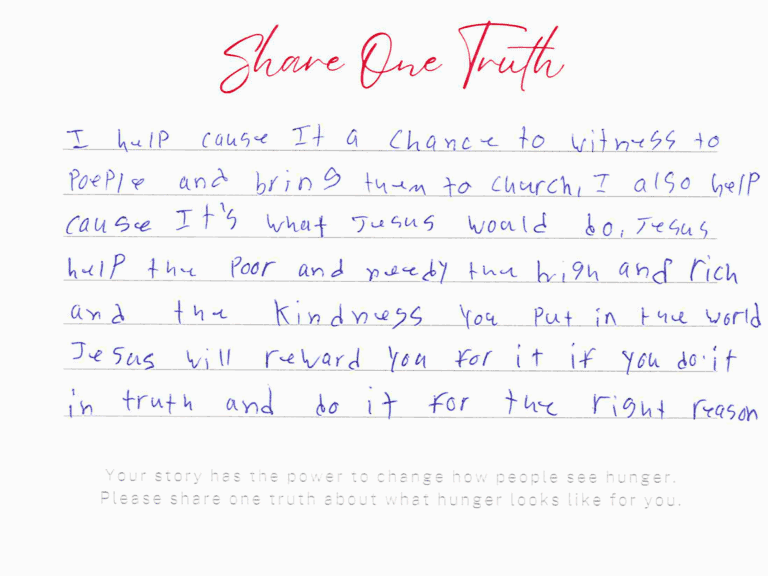 Share One Truth
I help cause It a chance to witness to
PoePle and bring them to church, I also help
cause It's what Jesus would do, Jesus
help the Poor and needy the high and rich
and the kindness you put in the world
Jesus will reward you for it if you do it
in truth and do it for the right reason
Your story has the power to change how people see hunger.
Please share one truth about what hunger looks like for you.